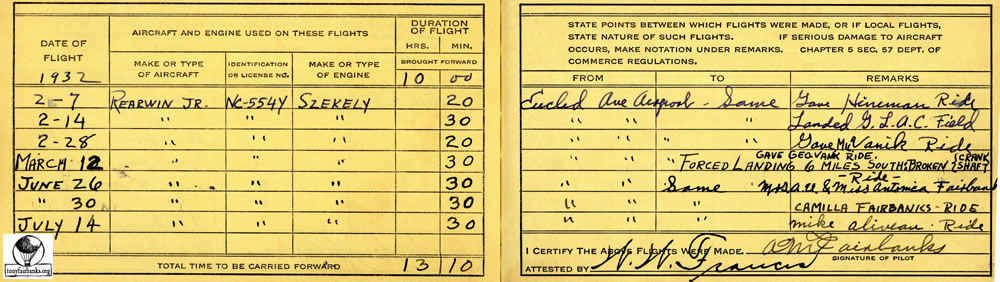 DATE OF FLIGHT
1932
AIRCRAFT AND ENGINE USED ON THESE FLIGHTS
DURATION OF FLIGHT
MAKE OR TYPE OF AIRCRAFT
IDENTIFICATION OR LICENSE NO.
MAKE OR TYPE OF ENGINE
HRS. MIN.
BROUGHT FORWARD
10 00
2-7 REARWIN JR. NC-554Y SZEKELY 20
2-14 " " " 30
2-28 " " " 20
MARCH 12 " " " 30
JUNE 26 " " " 30
" 30 " " " 30
JULY 14 " " " 30
TOTAL TIME TO BE CARRIED FORWARD 13 10
tonyfairbanks.org
STATE POINTS BETWEEN WHICH FLIGHTS WERE MADE, OR IF LOCAL FLIGHTS,
STATE NATURE OF SUCH FLIGHTS. IF SERIOUS DAMAGE TO AIRCRAFT
OCCURS, MAKE NOTATION UNDER REMARKS. CHAPTER 5 SEC. 57 DEPT. OF
COMMERCE REGULATIONS.
FROM TO REMARKS
Euclid Ave Airport - Same Gave Hineman Ride
" " " " Landed G.L.A.C. Field
" " " " Gave Vanik Ride
GAVE GEO. VANK RIDE.
" " FORCED LANDING 6 MILES SOUTH: BROKEN CRANK SHAFT
- Ride -
" " Same & Miss Fairbank
" " " CAMILLA FAIRBANKS - RIDE
" " " mike Ride
I CERTIFY THE ABOVE FLIGHTS WERE MADE. Fairbanks
SIGNATURE OF PILOT
ATTESTED BY Francis